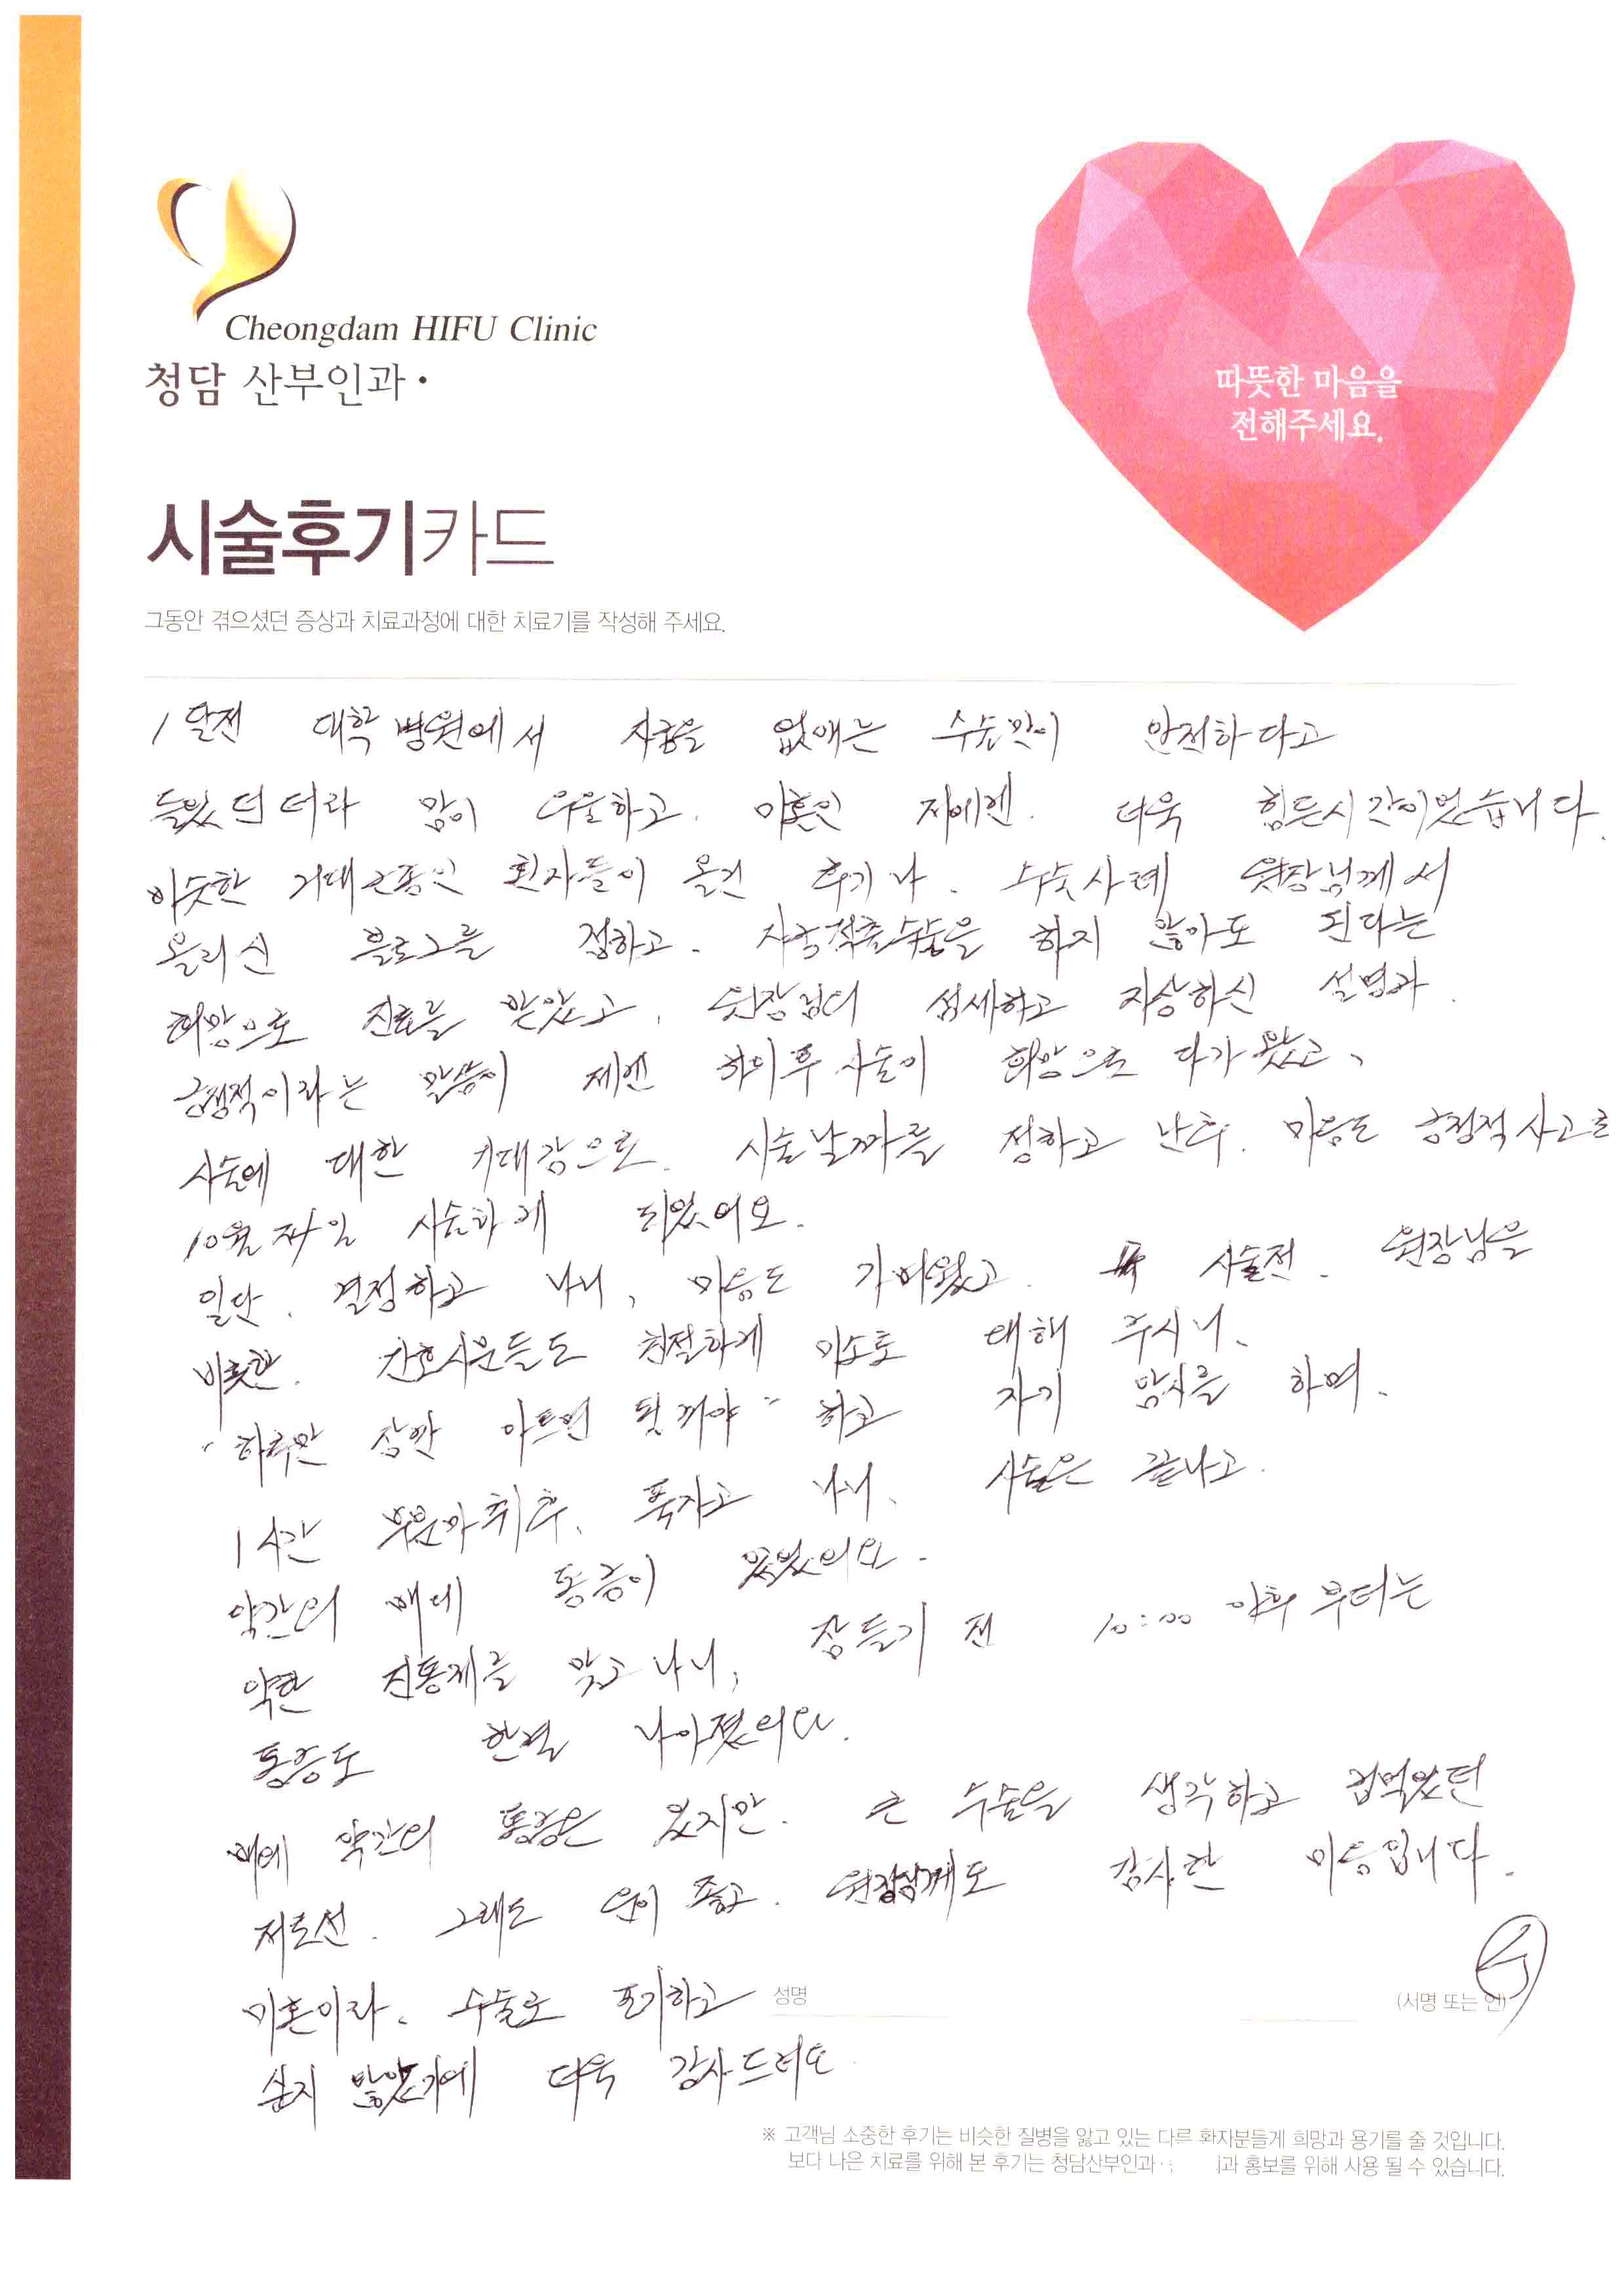 Cheongdam HIFU Clinic
청담 산부인과·
따뜻한 마음을
전해주세요.
시술후기카드
그동안 겪으셨던 증상과 치료과정에 대한 치료기를 작성해 주세요.
1달전 대학병원에서 자궁을 없애는 수술만이 안전하다고
들었던터라 맘이 우울하고. 미혼인 저에겐. 더욱 힘든시간이었습니다.
비슷한 거대근종인 환자들이 올린 후기나. 수술사례 원장님께서
올리신 블로그를 접하고. 자궁적출수술을 하지 않아도 된다는
희망으로 진료를 받았고, 원장님의 섬세하고 자상하신 설명과.
긍정적이라는 말씀이 제겐 하이푸 시술이 희망으로 다가왔고,
시술에 대한 기대감으로. 시술날짜를 정하고 난후. 마음도 긍정적 사고로
10월 일 시술하게 되었어요.
일단. 결정하고 나니, 마음도 가벼웠고. 시술전. 원장님을
비롯한. 간호사분들도 친절하게 미소로 대해 주시니.
"하루만 잠깐 아프면 될꺼야" 하고 자기 암시를 하며.
1시간 수면마취후. 푹자고 나니. 시술은 끝나고.
약간의 배에 통증이 있었어요.
약한 진통제를 맞고 나니, 잠들기 전 10:00 이후 부터는
통증도 한결 나아졌어요.
배에 약간의 통증은 있지만. 큰 수술을 생각하고 겁먹었던
저로선. 그래도 운이 좋고. 원장님께도 감사한 마음입니다.
미혼이라. 수술로 포기하고
싶지 않았기에 더욱 감사드려요
성명
(서명 또는 인)
※ 고객님 소중한 후기는 비슷한 질병을 앓고 있는 다른 환자분들게 희망과 용기를 줄 것입니다.
보다 나은 치료를 위해 본 후기는 청담산부인과· 과 홍보를 위해 사용 될 수 있습니다.